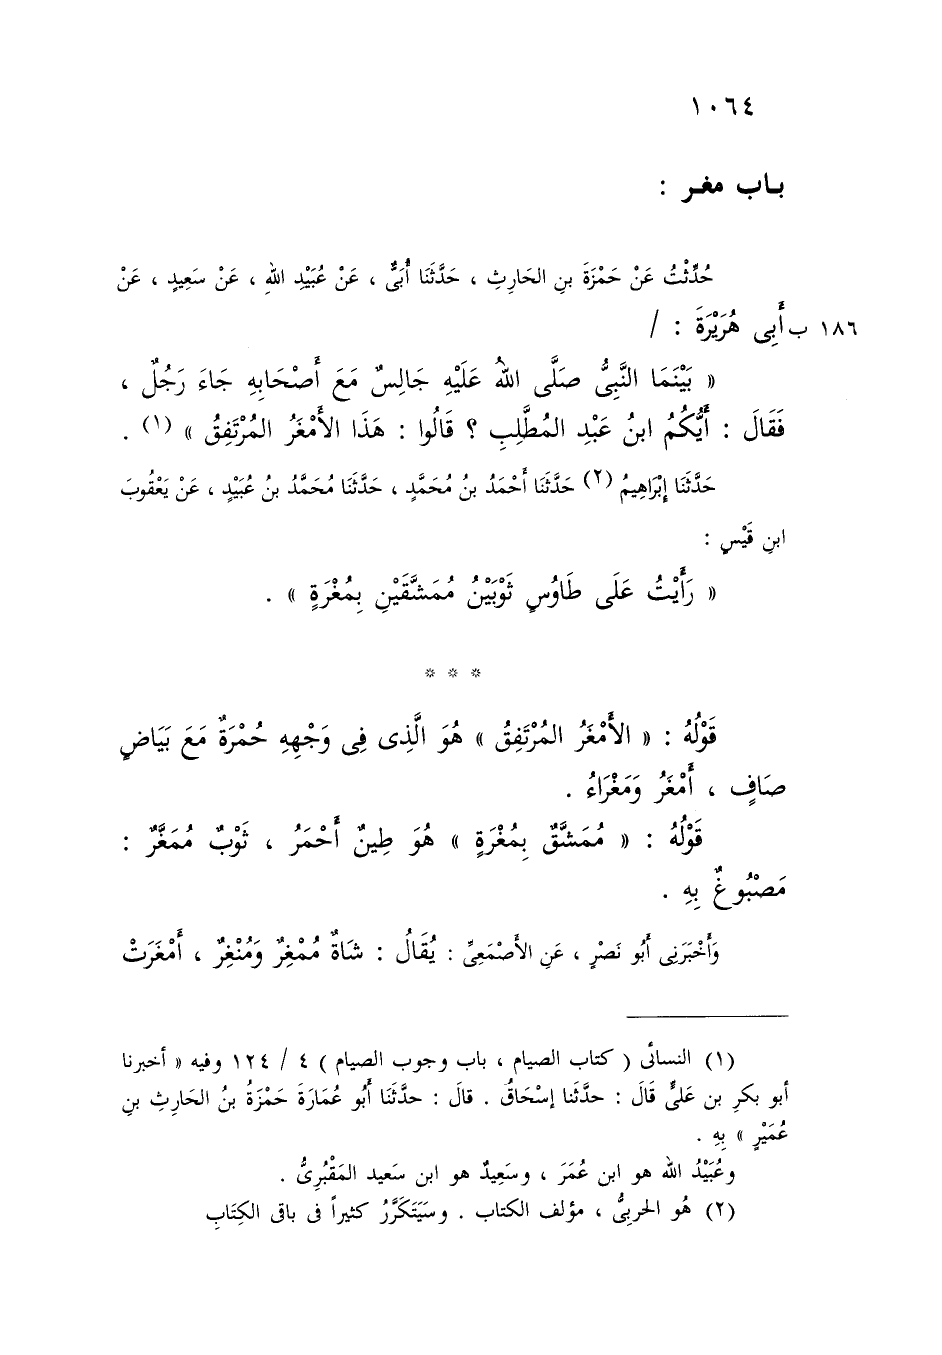 ١٠٦٤
بـاب مغـر :
حُدِّثْتُ عَنْ حَمْزَةَ بنِ الحَارِثِ ، حَدَّثَنَا أُبَىٌّ ، عَنْ عُبَيْدِ اللهِ ، عَنْ سَعِيدٍ ، عَنْ
١٨٦ ب أَبِى هُرَيْرَةَ : /
« بَيْنَمَا النَّبِىُّ صَلَّى اللهُ عَلَيْهِ جَالِسٌ مَعَ أَصْحَابِهِ جَاءَ رَجُلٌ ،
فَقَالَ : أَيُّكُمُ ابنُ عَبْدِ المُطَّلِبِ ؟ قَالُوا : هَذَا الأَمْغَرُ المُرْتَفِقُ » (١) .
حَدَّثَنَا إِبْرَاهِيمُ (٢) حَدَّثَنَا أَحْمَدُ بنُ مُحَمَّدٍ ، حَدَّثَنَا مُحَمَّدُ بنُ عُبَيْدٍ ، عَنْ يَعْقُوبَ
ابنِ قَيْسٍ :
« رَأَيْتُ عَلَى طَاوُسٍ ثَوْبَيْنُ مُمَشَّقَيْنِ بِمُغْرَةٍ » .
* * *
قَوْلُهُ : « الأَمْغَرُ المُرْتَفِقُ » هُوَ الَّذِى فِى وَجْهِهِ حُمْرَةٌ مَعَ بَيَاضٍ
صَافٍ ، أَمْغَرُ وَمَغْرَاءُ .
قَوْلُهُ : « مُمَشَّقٌ بِمُغْرَةٍ » هُوَ طِينٌ أَحْمَرُ ، ثَوْبٌ مُمَغَّرٌ :
مَصْبُوغٌ بِهِ .
وَأَخْبَرَنِى أَبُو نَصْرٍ ، عَنِ الأَصْمَعِىِّ : يُقَالُ : شَاةٌ مُمْغِرٌ وَمُنْغِرٌ ، أَمْغَرَتْ
(١) النسائى ( كتاب الصيام ، باب وجوب الصيام ) ٤ / ١٢٤ وفيه « أخبرنا
أبو بكرِ بن عَلىٍّ قَالَ : حدَّثَنا إسْحَاقُ . قالَ : حدَّثَنَا أَبُو عُمَارَةَ حَمْزَةُ بنُ الحَارِثِ بنِ
عُمَيْرٍ » بِهِ .
وعُبَيْدُ الله هو ابن عُمَرَ ، وسَعِيدٌ هو ابن سَعيد المَقْبُرِىُّ .
(٢) هُو الحربىُّ ، مؤلف الكتاب . وسَيَتَكَرَّرُ كثيراً فى باقى الكِتَابِ